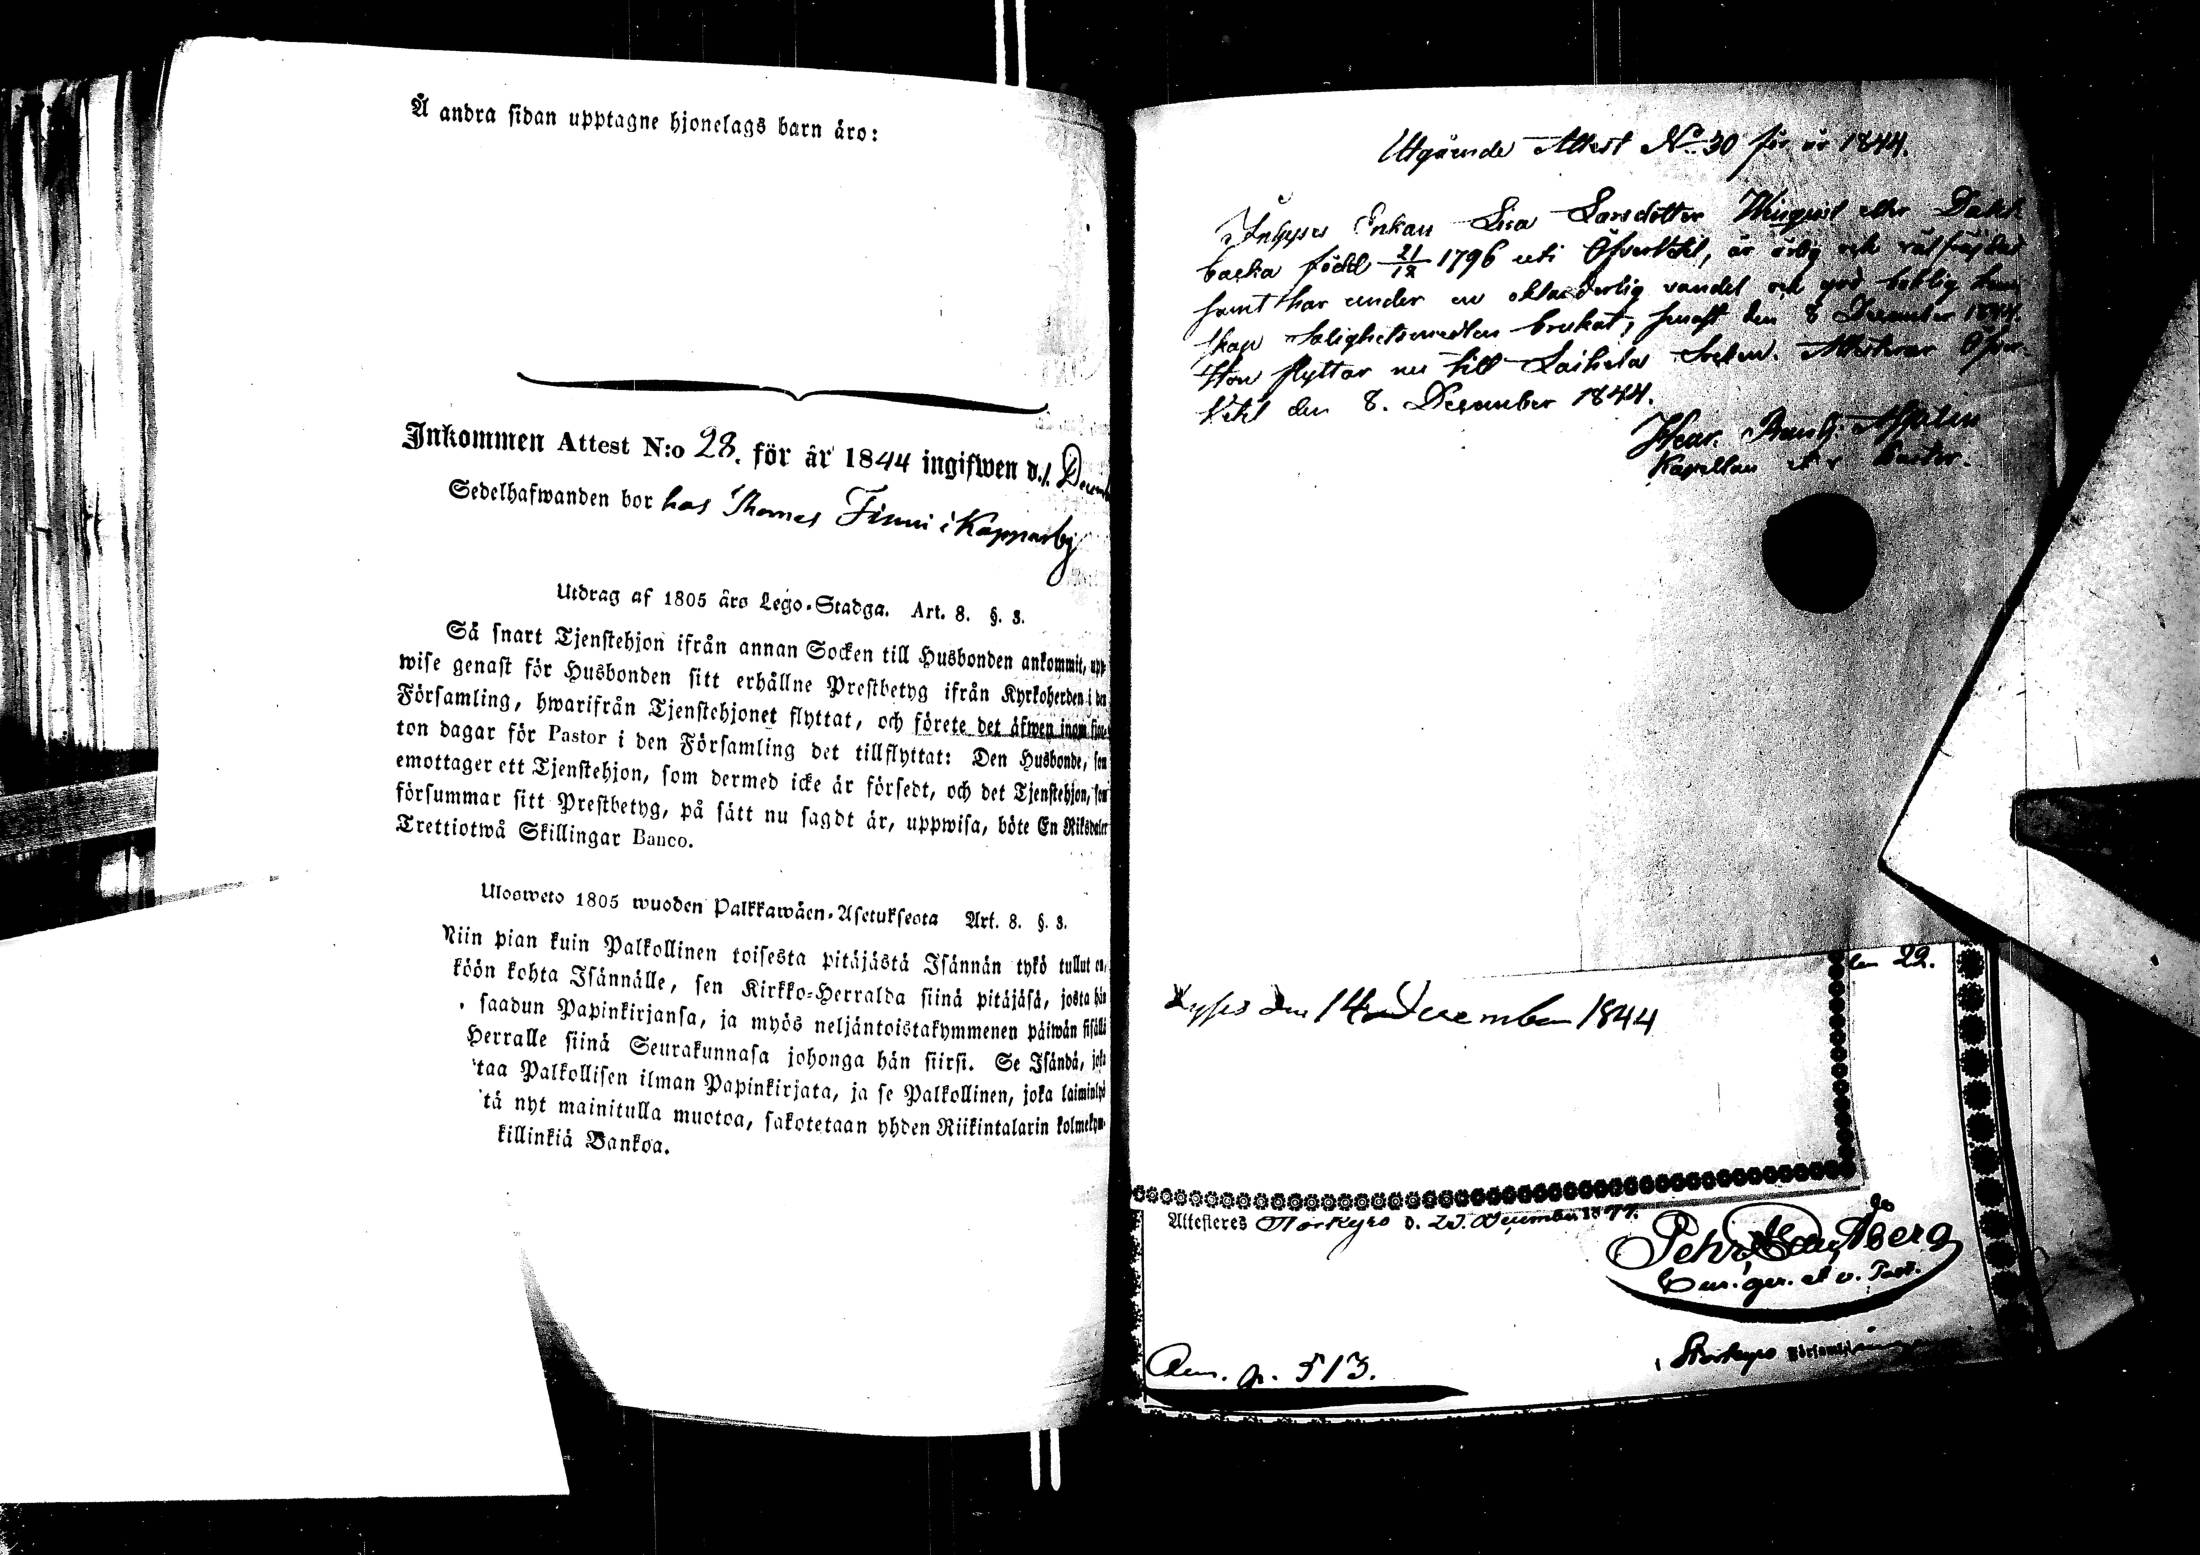 Å andra sidan upptagne hjonelags barn äro:
Inkommen Attest N:o 28. för år 1844 ingifwen d. 1. Decem
Sedelhafwanden bor hos Thomas Finni i Kapparby
Utdrag af 1805 års Lego-Stadga. Art. 8. §. 3.
Så snart Tjenstehjon ifrån annan Socken till Husbonden ankommit, upp
wise genast för Husbonden sitt erhållne Prestbetyg ifrån Kyrkoherden i den
Församling, hwarifrån Tjenstehjonet flyttat, och förete det äfwen inom fjor
ton dagar för Pastor i den Församling det tillflyttat: Den Husbonde, som
emottager ett Tjenstehjon, som dermed icke är försedt, och det Tjenstehjon, som
försummar sitt Prestbetyg, på sätt nu sagdt är, uppwisa, böte En Riksdaler
Trettiotwå Skillingar Banco.
Ulosweto 1805 wuoden Palkkawäen-Asetuksesta Art. 8. §. 3.
Niin pian kuin Palkollinen toisesta pitäjästä Isännän tykö tullut on,
köön kohta Isännälle, sen Kirkko-Herralda siinä pitäjäsä, josta hän
saadun Papinkirjansa, ja myös neljäntoistakymmenen päiwän sisällä
Herralle siinä Seurakunnasa johonga hän siirsi. Se Isändä, joka
taa Palkollisen ilman Papinkirjata, ja se Palkollinen, joka laiminlyö
tä nyt mainitulla muotoa, sakotetaan yhden Riikintalarin kolmekym-
killinkiä Bankoa.
Utgående Attest No 30 för år 1844.
Enkan Lisa Larsdotter eller
backa född 21/12 1796 uti Öfvertehl, är ärlig och välfräjdad
samt har under en oklanderlig vandel och god boklig kun
skap salighetsmedlen brukat, senast den 8 December 1844.
Hon flyttar nu till Laihela Socken. Attesterar Öfver-
den 8. December 1844.
Kapellan
den 22.
den 14 December 1844
Attesteres Storkyro d. December 1877.
Pehr
Cur. ger. et v. Past.
i Storkyro Församling
p. 513.